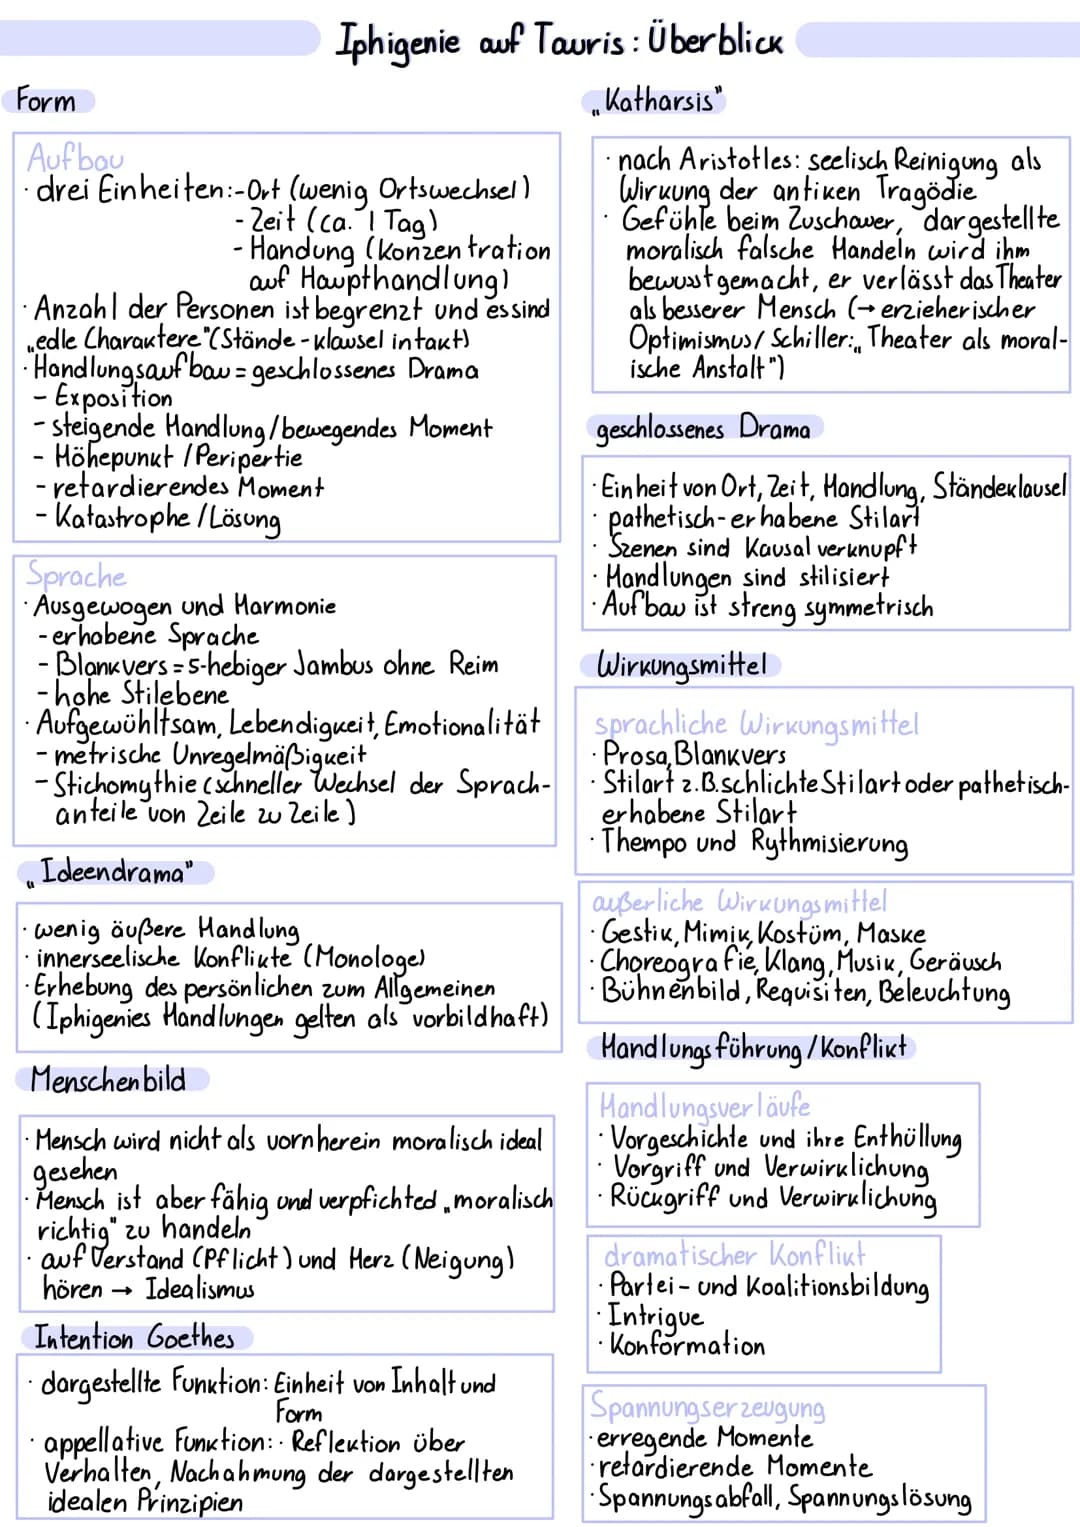 Iphigenie auf Tauris: Überblick
Form
Aufbau
· drei Einheiten:-Ort (wenig Ortswechsel)
- Zeit (ca. 1 Tag)
- Handung (Konzentration
auf Haupthandlung)
· Anzahl der Personen ist begrenzt und es sind
„edle Charaktere"(Stände-klausel intakt)
· Handlungsaufbau = geschlossenes Drama
- Exposition
- steigende Handlung/bewegendes Moment
- Höhepunkt /Peripertie
- retardierendes Moment
- Katastrophe /Lösung
Sprache
· Ausgewogen und Harmonie
- erhabene Sprache
- Blankvers = 5-hebiger Jambus ohne Reim
- hohe Stilebene
· Aufgewühltsam, Lebendigkeit, Emotionalität
- metrische Unregelmäßigkeit
- Stichomythie (schneller Wechsel der Sprach-
anteile von Zeile zu Zeile)
„Ideendrama"
· wenig äußere Handlung
· innerseelische Konflikte (Monologe)
· Erhebung des persönlichen zum Allgemeinen
(Iphigenies Handlungen gelten als vorbildhaft)
Menschenbild
· Mensch wird nicht als vornherein moralisch ideal
gesehen
· Mensch ist aber fähig und verpfichted „moralisch
richtig" zu handeln
· auf Verstand (Pflicht) und Herz (Neigung)
hören → Idealismus
Intention Goethes
· dargestellte Funktion: Einheit von Inhalt und
Form
· appellative Funktion: · Reflektion über
Verhalten, Nachahmung der dargestellten
idealen Prinzipien
„Katharsis"
· nach Aristotles: seelisch Reinigung als
Wirkung der antiken Tragödie
· Gefühle beim Zuschauer, dargestellte
moralisch falsche Handeln wird ihm
bewusst gemacht, er verlässt das Theater
als besserer Mensch (→ erzieherischer
Optimismus/ Schiller: „Theater als moral-
ische Anstalt")
geschlossenes Drama
· Einheit von Ort, Zeit, Handlung, Ständeklausel
· pathetisch-erhabene Stilart
· Szenen sind Kausal verknupft
· Handlungen sind stilisiert
· Aufbau ist streng symmetrisch
Wirkungsmittel
sprachliche Wirkungsmittel
· Prosa, Blankvers
· Stilart z.B. schlichte Stilart oder pathetisch-
erhabene Stilart
· Thempo und Rythmisierung
außerliche Wirkungsmittel
· Gestik, Mimik, Kostüm, Maske
· Choreografie, Klang, Musik, Geräusch
· Bühnenbild, Requisiten, Beleuchtung
Handlungsführung/Konflikt
Handlungsverläufe
· Vorgeschichte und ihre Enthüllung
· Vorgriff und Verwirklichung
· Rückgriff und Verwirklichung
dramatischer Konflikt
· Partei- und Koalitionsbildung
· Intrigue
· Konformation
Spannungserzeugung
· erregende Momente
· retardierende Momente
· Spannungsabfall, Spannungslösung